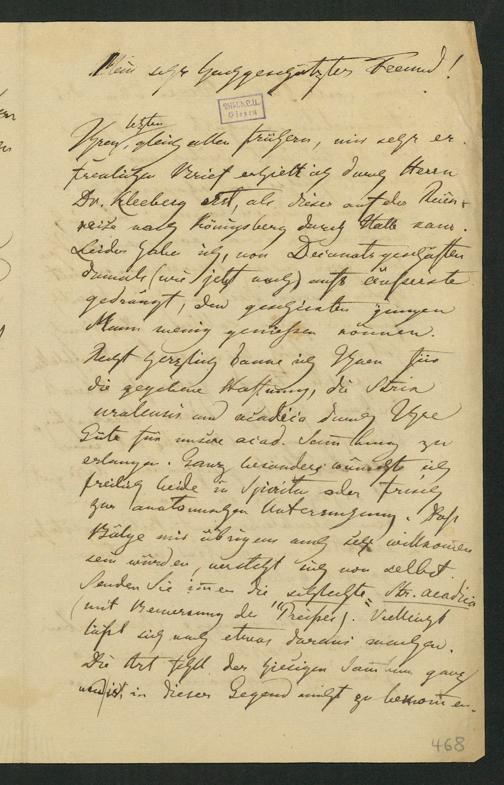 Mein sehr hochgeschätzter Freund!
Bibl. d. U. Giessen
letzten
Ihren, gleich allen frühern, mir sehr er-
freulichen Brief erhielt ich durch Herrn
Dr. Kleeberg erst, als dieser auf der Rück-
reise nach Königsberg durch Halle kam.
Leider habe ich, von Decanatsgeschäften
damals (wie jetzt noch) aufs äusserste
gedrängt, den gescheiten jungen
Mann wenig geniessen können.
Recht herzlich danke ich Ihnen für
die gegebene Hoffnung, die Strix
uralensis und acadica durch Ihre
Güte für unsere acad. Sammlung zu
erlangen. Ganz besonders wünschte ich
freilich beide in Spiritu oder frisch
zur anatomischen Untersuchung. Dass
Bälge mir übrigens auch sehr willkommen
sein würden, versteht sich von selbst.
Senden Sie immer die schlechte Str. acadica
(mit Bemerkung des Preises). Vielleicht
lässt sich noch etwas daraus machen.
Die Art fehlt der hiesigen Samml. ganz
und ist in dieser Gegend nicht zu bekommen.
468